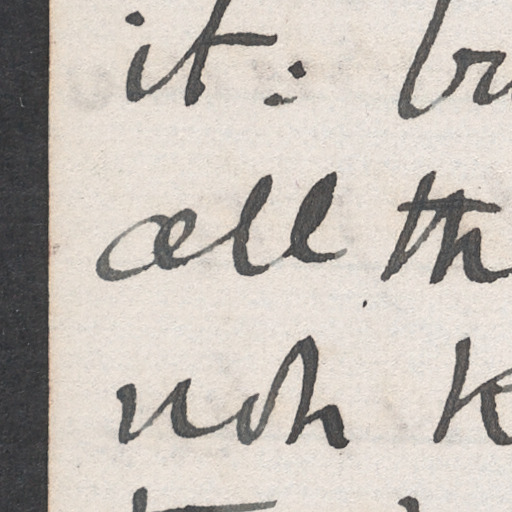 it: bu
all th
not k